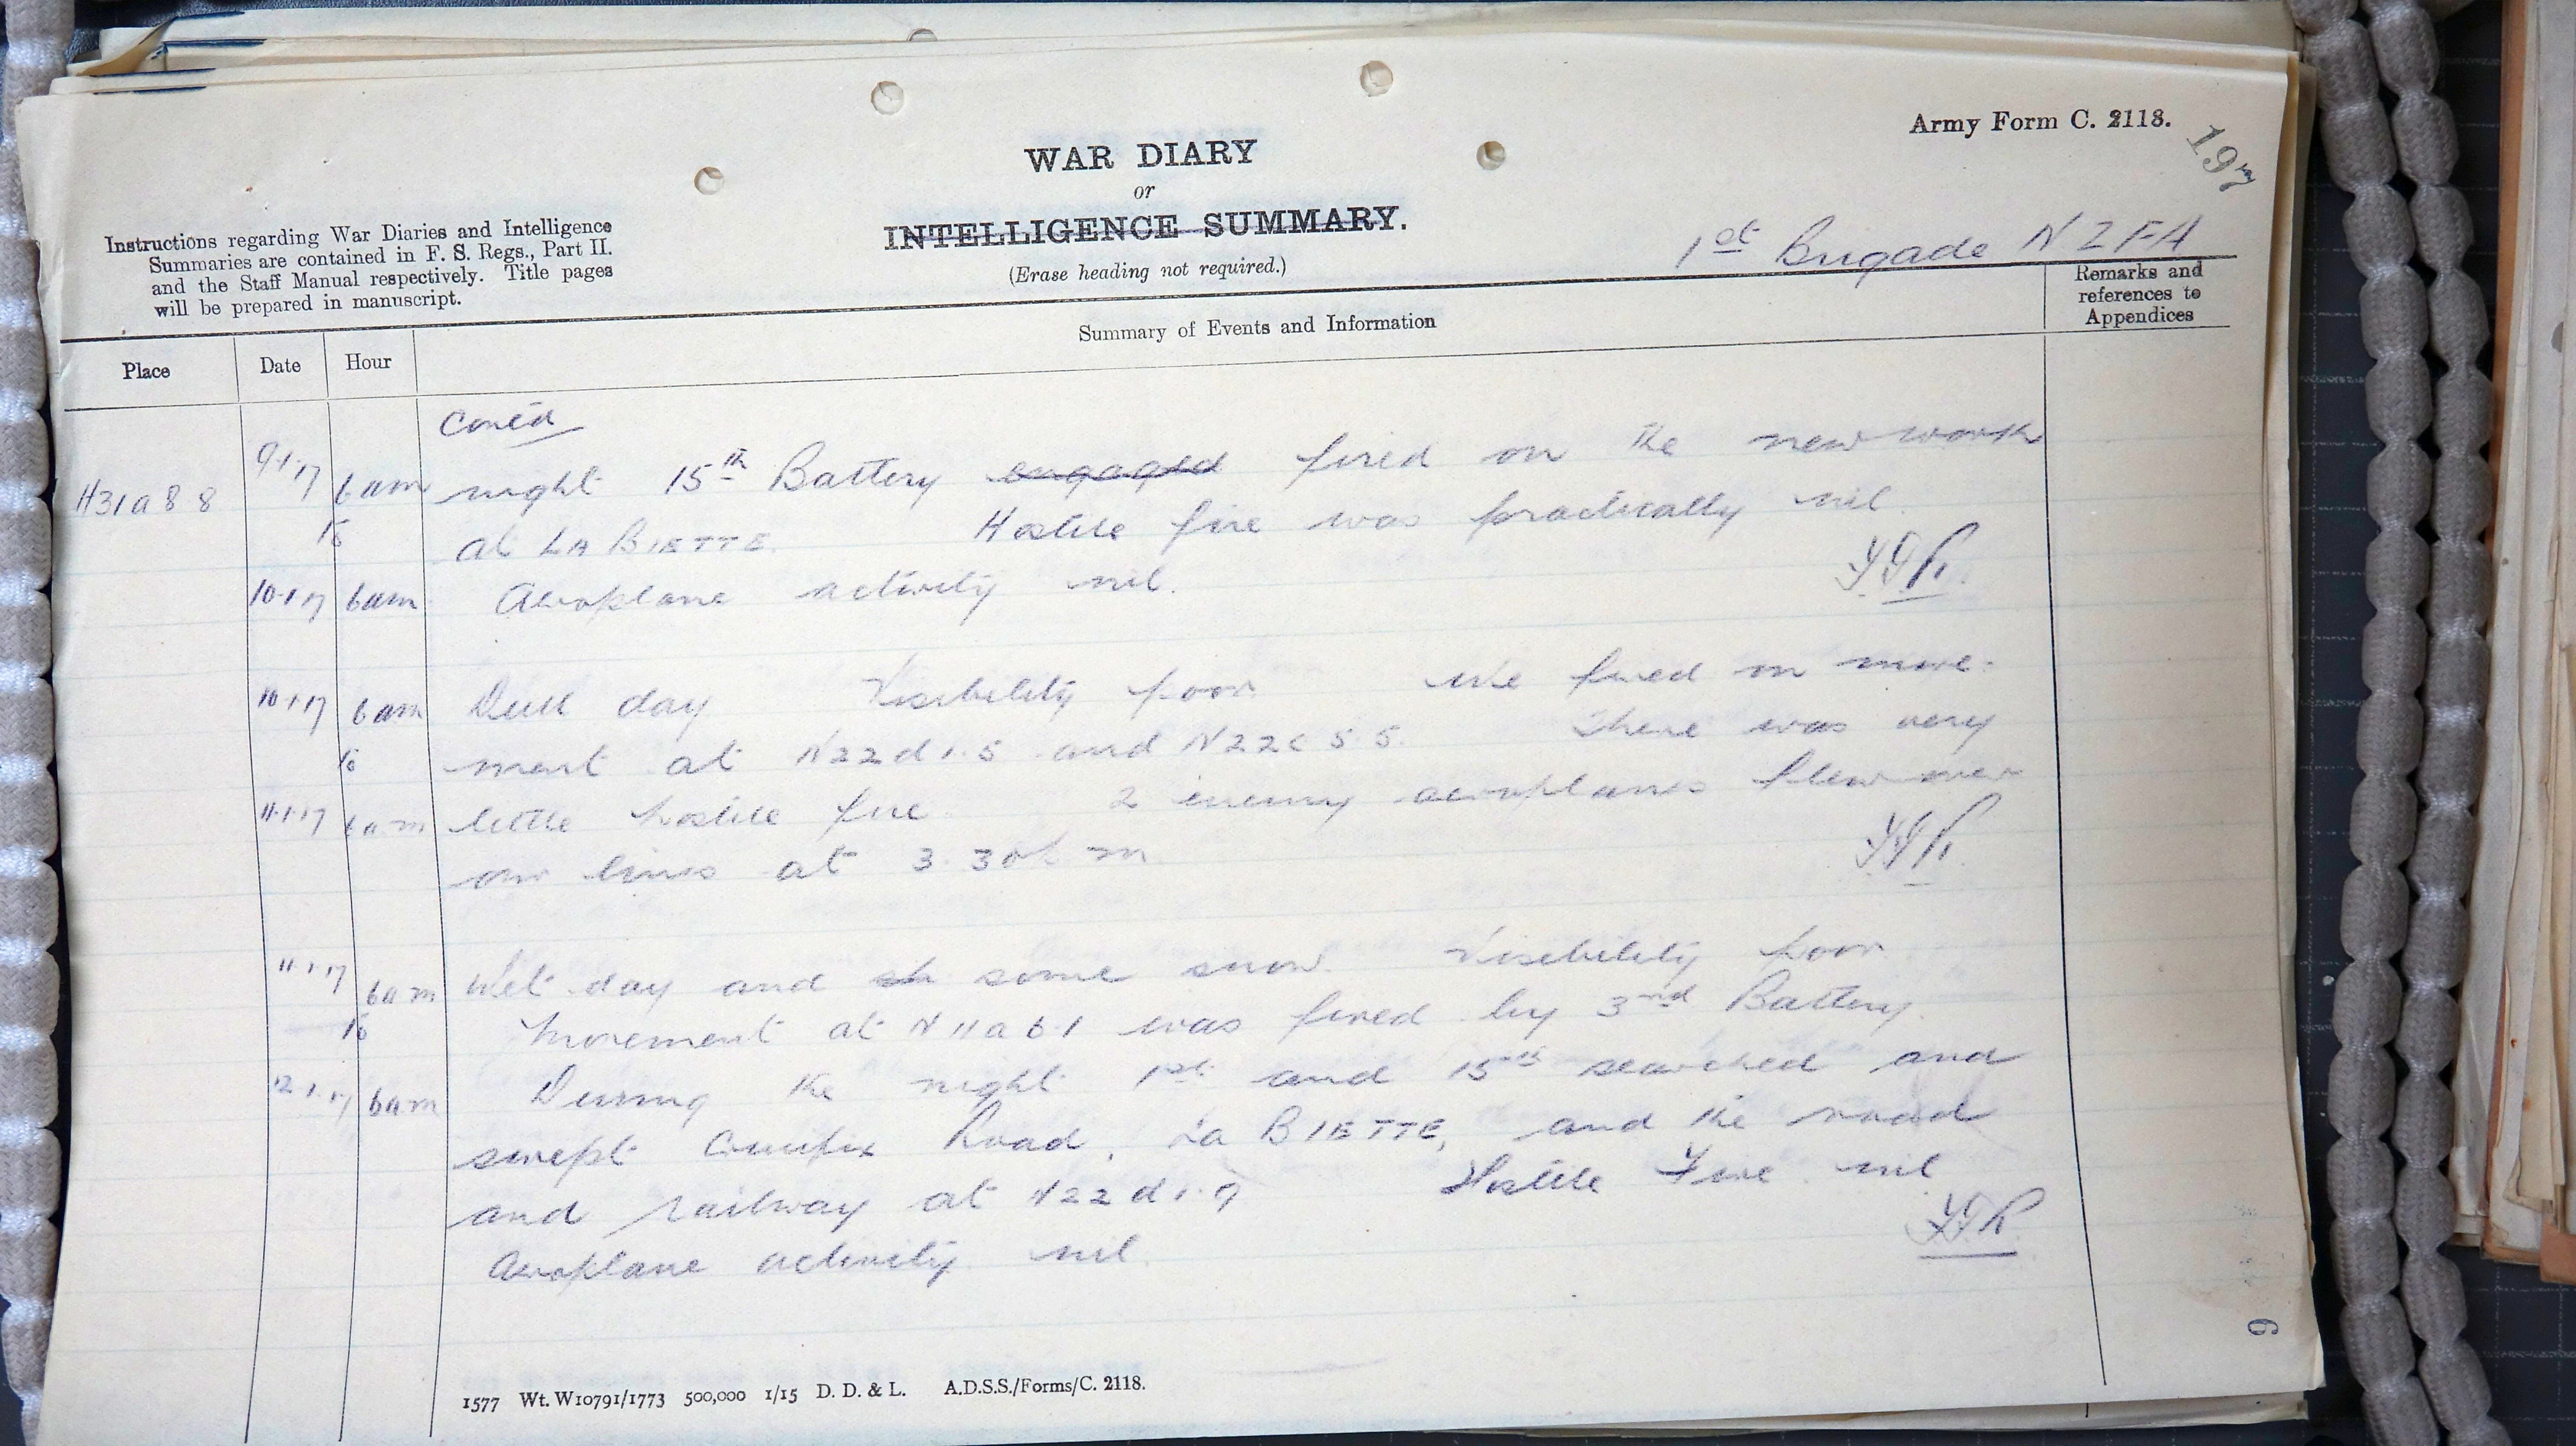 Army Form C. 2118.
197
WAR DIARY
or
INTELLIGENCE SUMMARY.
(Erase heading not required.)
Instructions regarding War Diaries and Intelligence
Summaries are contained in F. S. Regs., Part II.
and the Staff Manual respectively. Title pages
will be prepared in manuscript.
1st Brigade NZFA
Place
Date
Hour
Summary of Events and Information
Remarks and
references to
Appendices
Cont'd
H31a88 9.1.17 6am night 15th Battery engaged fired on the new work
to at LA BIETTE. Hostile fire was practically nil.
10.1.17 6am Aeroplane activity nil.
10.1.17 6am Dull day Visibility poor We fired on move-
to ment at N22d1.5 and N22c5.5. There was very
11.1.17 6am little hostile fire 2 enemy aeroplanes flew over
our lines at 3.30pm
11.1.17 6am Wet day and some snow. Visibility poor
to Movement at N11a6.1 was fired by 3rd Battery.
12.1.17 6am During the night 1st and 15th searched and
swept Crucifix Road, La BIETTE, and the road
and railway at N22d1.9 Hostile Fire nil
Aeroplane activity nil.
1577 Wt. W10791/1773 500,000 1/15 D. D. & L. A.D.S.S./Forms/C. 2118.
6